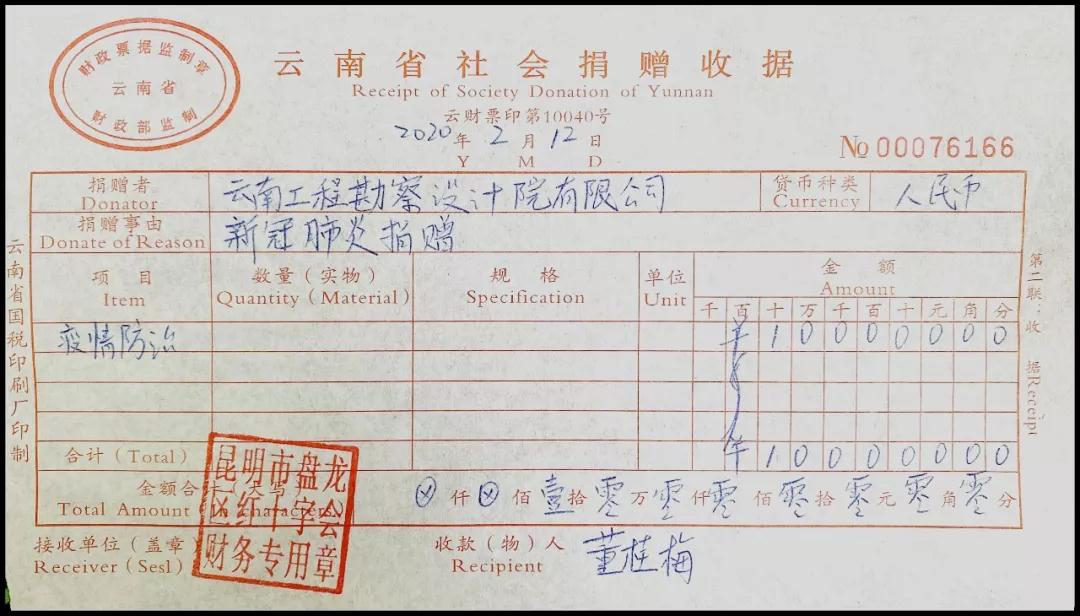 财政票据监制章
云南省
财政部监制
云南省社会捐赠收据
Receipt of Society Donation of Yunnan
云财票印第10040号
2020年2月12日
Y M D
No 00076166
捐赠者 云南工程勘察设计院有限公司 货币种类 人民币
Donator Currency
捐赠事由 新冠肺炎捐赠
Donate of Reason
项目 数量（实物） 规格 单位 金额
Item Quantity（Material） Specification Unit Amount
千 百 十 万 千 百 十 元 角 分
疫情防治 ¥ 1 0 0 0 0 0 0 0
合计（Total） ¥ 1 0 0 0 0 0 0 0
金额合计 ⊗仟⊗佰壹拾零万零仟零佰零拾零元零角零分
Total Amount
昆明市盘龙
区红十字会
财务专用章
接收单位（盖章） 收款（物）人 董桂梅
Receiver（Sesl） Recipient
云南省国税印刷厂印制
第二联：收据Receipt